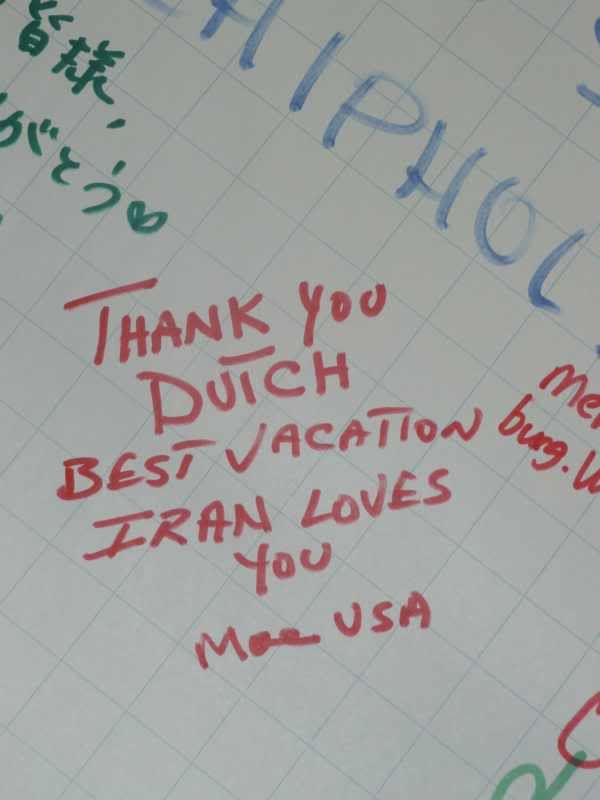 皆様,
がとう♡
CHIPHOL
THANK YOU
DUTCH
BEST VACATION
IRAN LOVES
YOU
USA
burg.